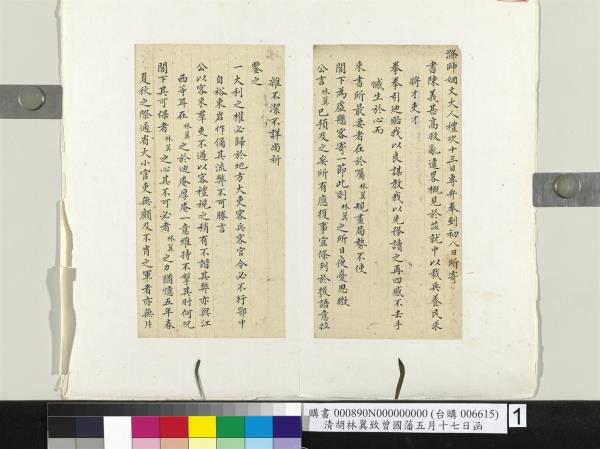 滌師姻丈大人禮次十三日專弁奉到初八日所寄
書陳義甚高救亂遠畧概見於茲就中以裁兵養民求
將才吏才
拳拳引迪貽我以良謀教我以先務讀之再四感不去手
慽生於心而
來書所最要者在於屬林翼規畫局勢不使
閣下為虛懸客寄一節此則林翼之所日夜憂思緻
公言林翼已預及之矣所有應復事宜條列於後語意拉
雜不潔不詳尚祈
鑒之
一大利之權必歸於地方大吏客兵客官令必不行鄂中
自裕東岩作俑其流弊不可勝言
公以客來羣吏不過以客禮視之稍有不諧其弊亦與江
西等耳在林翼之於迪庵厚庵一意維持不掣其肘何況
閣下其可保者林翼之心其不可必者林翼之力猶憶五年春
夏秋之際通省大小官吏無顧及不肖之軍者亦無片
購書 000890N000000000 (台購 006615)
清胡林翼致曾國藩五月十七日函
1